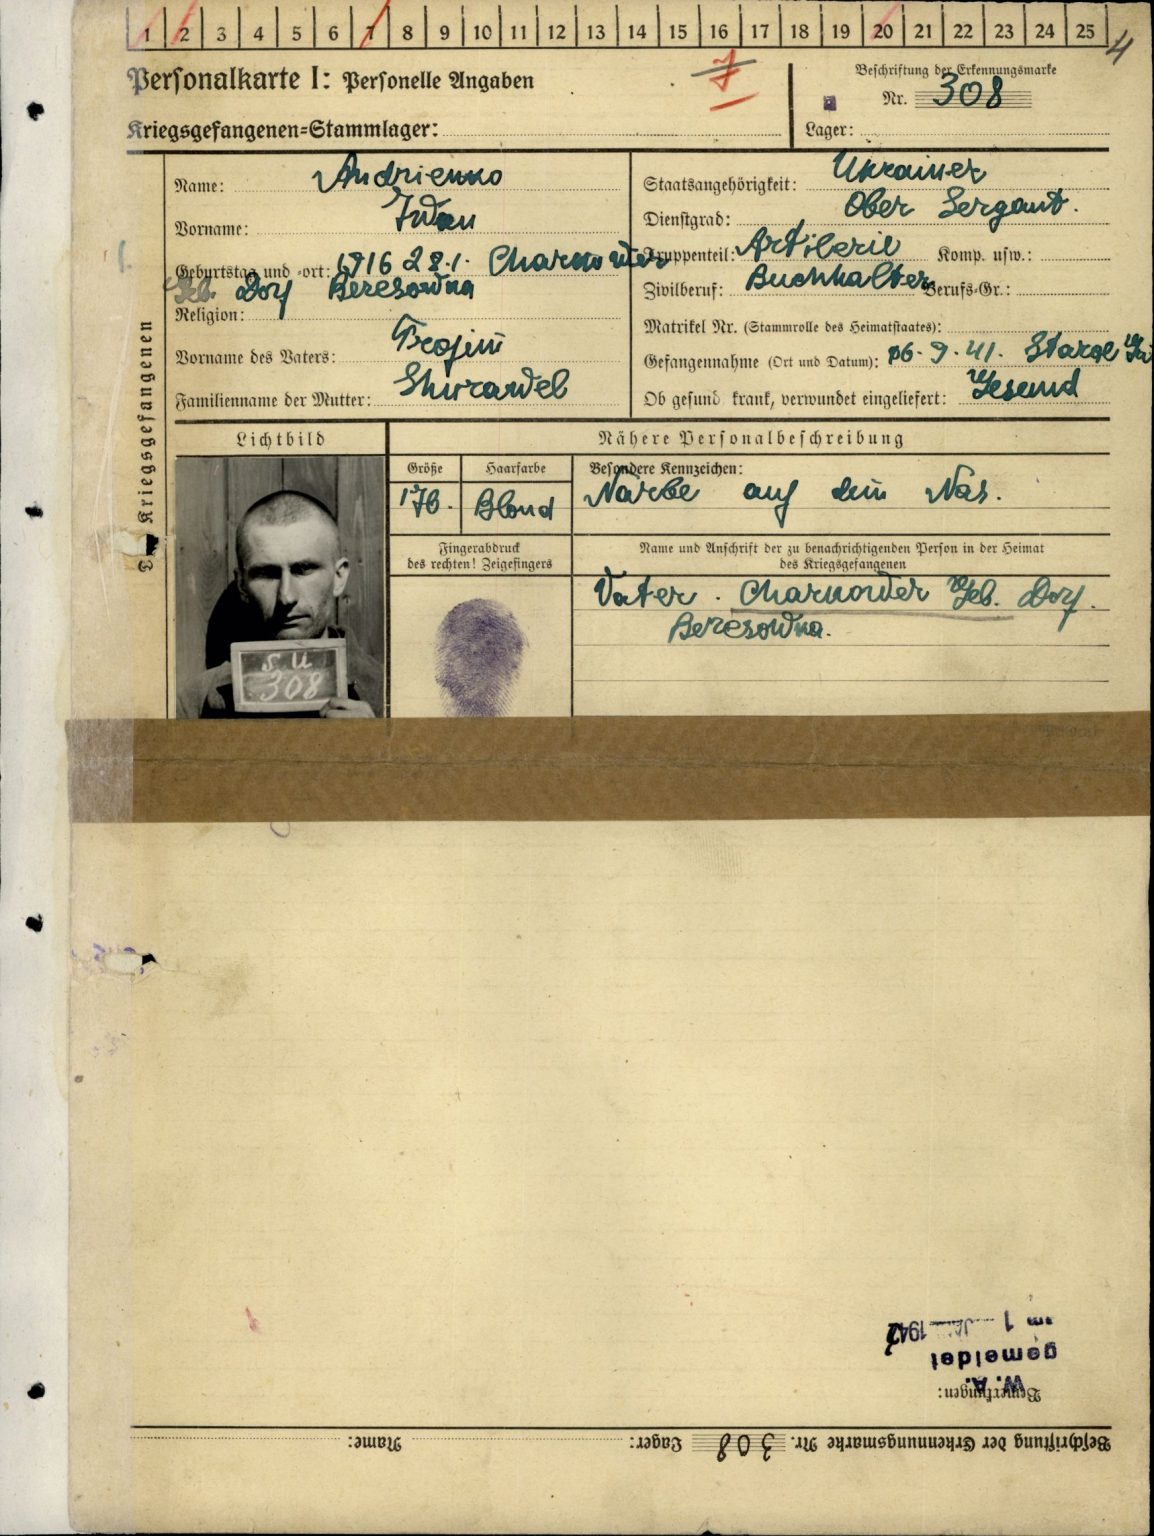 1 2 3 4 5 6 7 8 9 10 11 12 13 14 15 16 17 18 19 20 21 22 23 24 25
4
Personalkarte I: Personelle Angaben
7
Beschriftung der Erkennungsmarke
Nr. 308
Kriegsgefangenen-Stammlager:
Lager:
Des Kriegsgefangenen
Name: Andrienko
Vorname: Iwan
Geburtstag und -ort: 1916 28.1. Charkower
Geb. Dorf Beresowka
Religion:
Vorname des Vaters: Trofim
Familienname der Mutter: Shurawel
Staatsangehörigkeit: Ukrainer
Dienstgrad: Ober Sergant.
Truppenteil: Artilerie Komp. usw.:
Zivilberuf: Buchhalter Berufs-Gr.:
Matrikel Nr. (Stammrolle des Heimatstaates):
Gefangennahme (Ort und Datum): 16.9.41.
Ob gesund, krank, verwundet eingeliefert: Gesund
Lichtbild
S.U
308
Nähere Personalbeschreibung
Größe
176.
Haarfarbe
Blond
Besondere Kennzeichen:
Narbe auf dem Nas.
Fingerabdruck
des rechten! Zeigefingers
Name und Anschrift der zu benachrichtigenden Person in der Heimat
des Kriegsgefangenen
Vater. Charkower Geb. Dorf.
Beresowka.
Beschriftung der Erkennungsmarke Nr. 308 Lager: Name:
Bemerkungen:
W.A.
gemeldet
am 1 1942